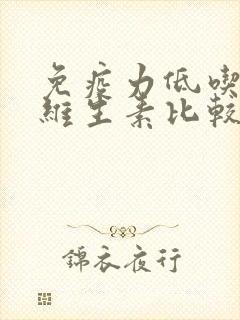 免疫力低喫
維生素比較
錦衣夜行